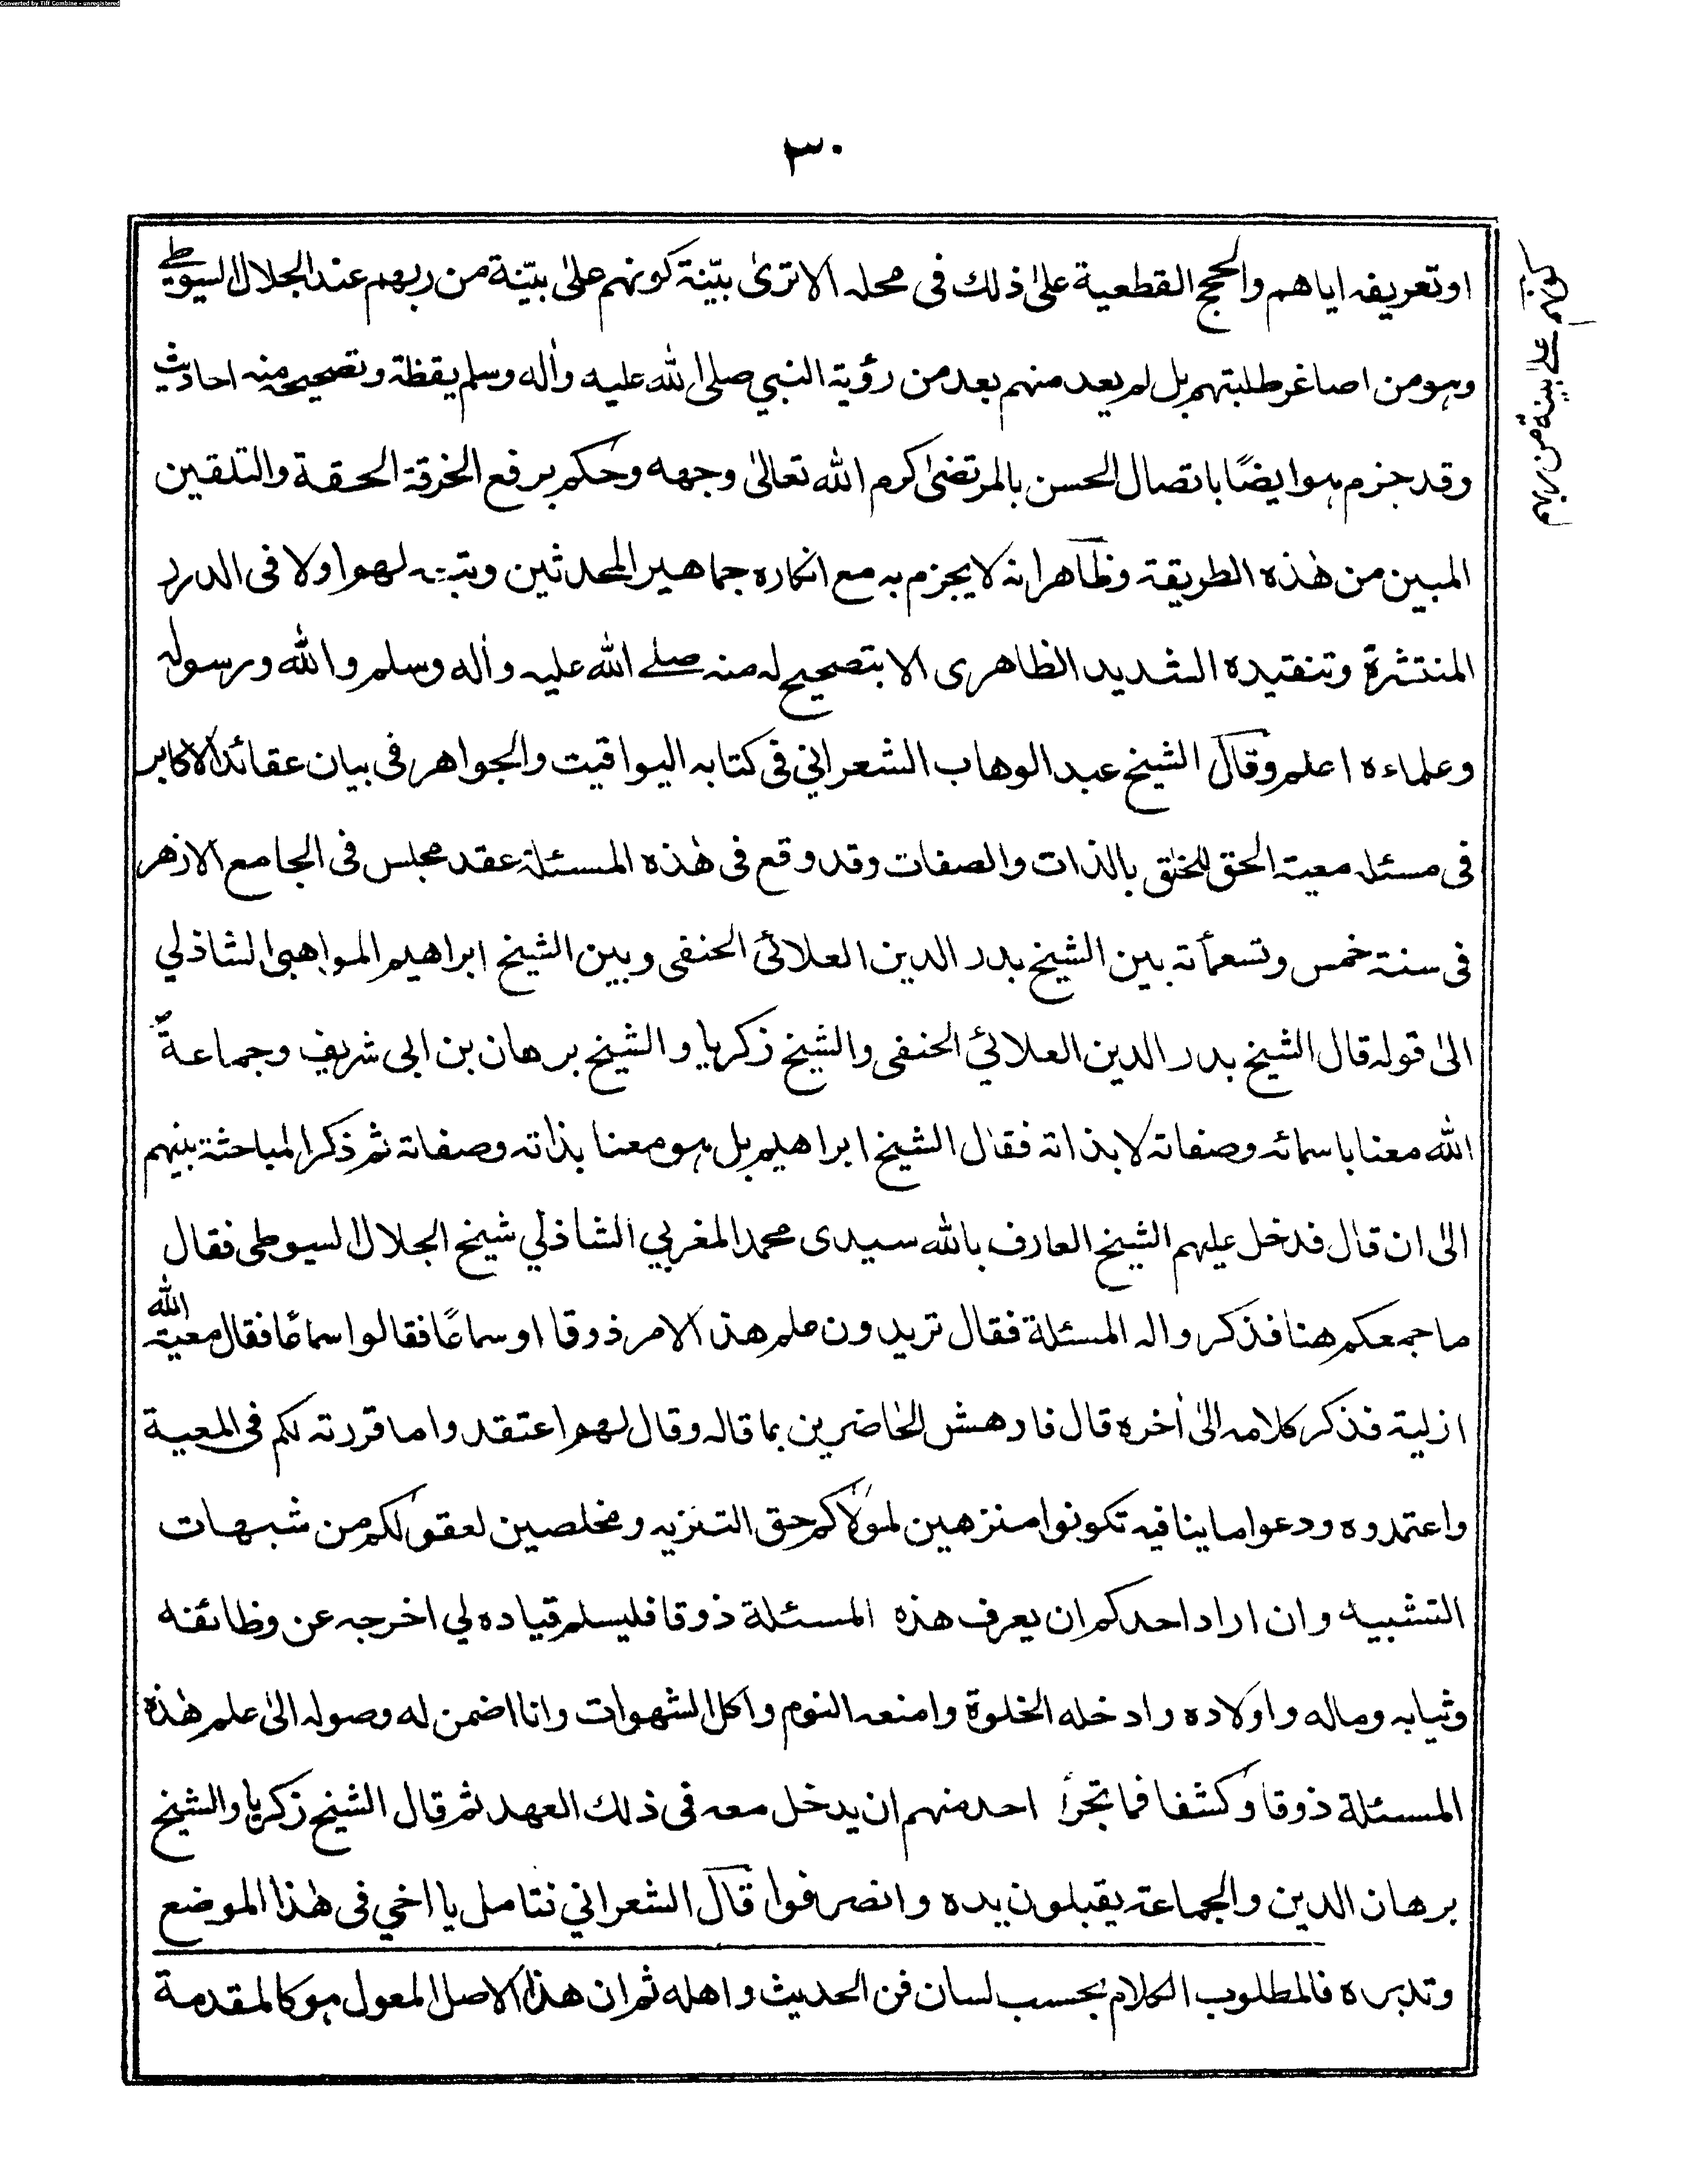 Converted by Tiff Combine - unregistered
٣٠
او تعريفه اياهم والحجج القطعية علىٰ ذلك فى محله الا ترىٰ بيّنة كونهم علىٰ بيّنة من ربهم عند الجلال السيوطي
وهو من اصاغر طلبتهم بل لم يعد منهم بعد من رؤية النبي صلى الله عليه واٰله وسلم يقظة وتصحيحه منه احاديث
وقد جزم هو ايضًا باتصال الحسن بالمرتضىٰ كرم الله تعالىٰ وجهه وحكم برفع الخرقة الحقة والتلقين
المبين من هٰذه الطريقة وظاهر انه لا يجزم به مع انكاره جماهير المحدثين وتبته لهم اولا فى الدرر
المنتثرة وتنقيده الشديد الظاهرى الا بتصحيح له منه صلے الله عليه واٰله وسلم والله ورسوله
وعلماءه اعلم وقال الشيخ عبد الوهاب الشعراني فى كتابه اليواقيت والجواهر فى بيان عقائد الاكابر
فى مسئله معية الحق للخلق بالذات والصفات وقد وقع فى هٰذه المسئلة عقد مجلس فى الجامع الازهر
فى سنة خمس وتسعمأته بين الشيخ بدر الدين العلائى الحنفى وبين الشيخ ابراهيم المواهبى الشاذلي
الىٰ قوله قال الشيخ بدر الدين العلائي الحنفى والشيخ زكريا و الشيخ برهان بن ابى شريف وجماعة
الله معنا باسمائه وصفاته لا بذاته فقال الشيخ ابراهيم بل هو معنا بذاته وصفاته ثم ذكر المباحثة بينهم
الىٰ ان قال فدخل عليهم الشيخ العارف بالله سيدى محمد المغربي الشاذلي شيخ الجلال السيوطى فقال
ما جمعكم هنا فذكر واله المسئلة فقال تريدون علم هذ الامر ذوقا او سماعًا فقالوا سماعًا فقال معية الله
ازلية فذكر كلامه الىٰ اٰخره قال فادهش الحاضرين بما قاله وقال لهم اعتقد واما قررته لكم فى المعية
واعتمدوه ودعوا ما ينافيه تكونوا منزهين لمولاكم حق التنزيه ومخلصين لعقولكم من شبهات
التشبيه وان اراد احدكم ان يعرف هذه المسئلة ذوقا فليسلم قياده لي اخرجه عن وظائفه
وثيابه وماله واولاده وادخله الخلوة وامنعه النوم واكل الشهوات وانا اضمن له وصوله الىٰ علم هٰذه
المسئلة ذوقا وكشفا فما تجرأ احد منهم ان يدخل معه فى ذلك العهد ثم قال الشيخ زكريا والشيخ
برهان الدين والجماعة يقبلون يده وانصرفوا قال الشعراني نتامل يا اخي فى هٰذا الموضع
وتدبره فالمطلوب الكلام بحسب لسان فن الحديث واهله ثم ان هذا الاصل المعول هو كالمقدمة
علے بينة من ربهم